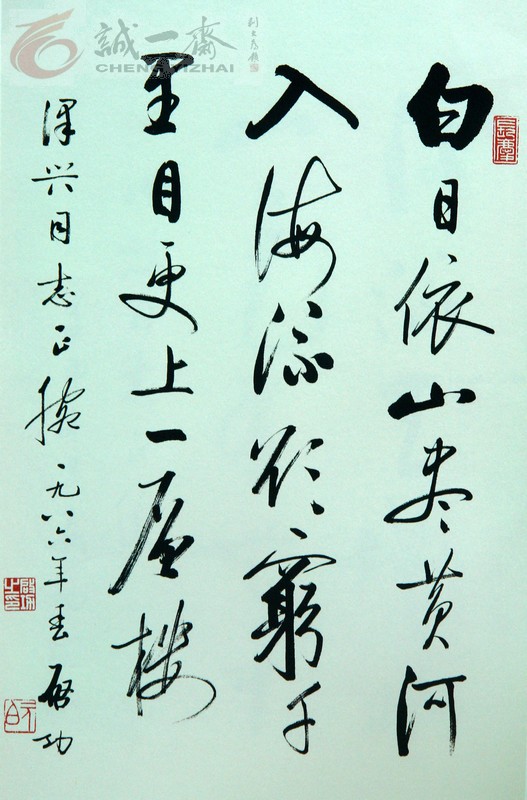 誠一齋
CHENGYIZHAI
白日依山尽黄河
入海流欲窮千
里目更上一層樓
澤兴同志正腕一九八六年春 启功
啟功之印
元白